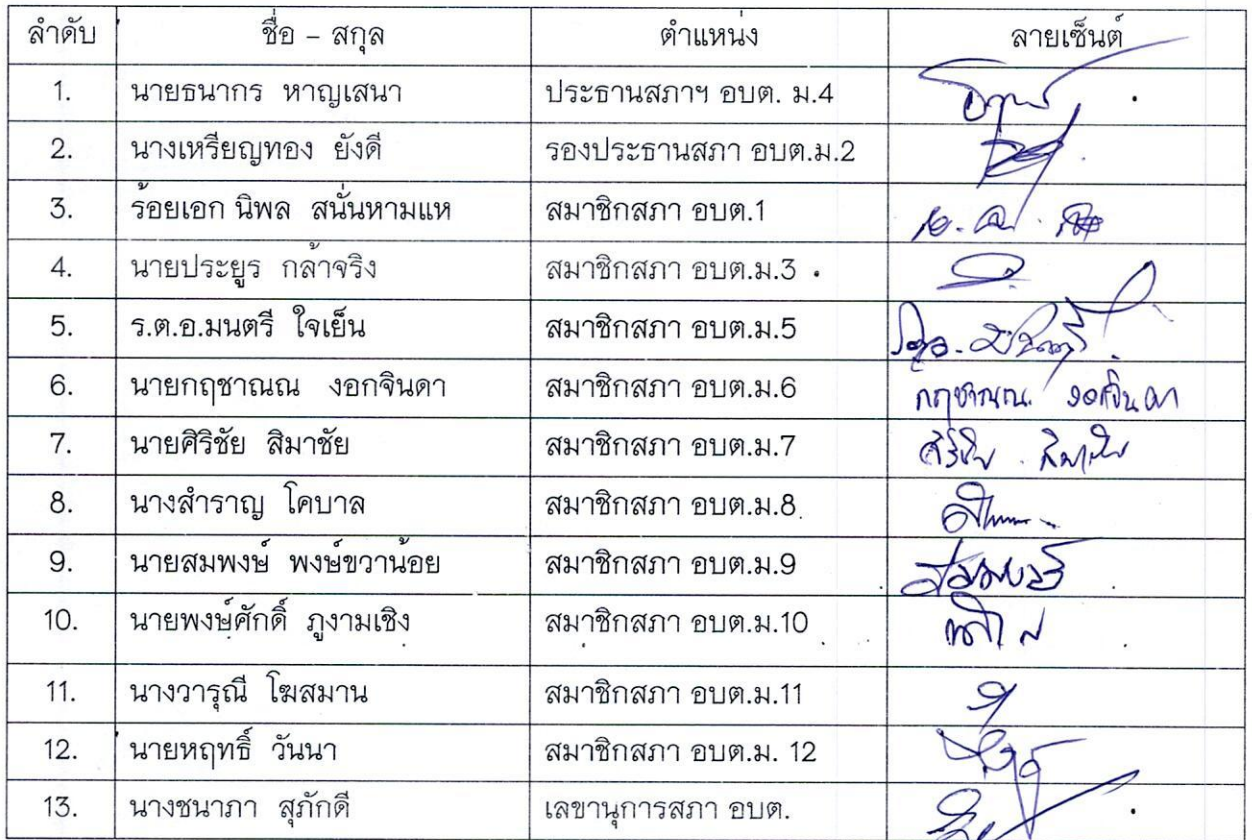 ลำดับ ชื่อ - สกุล ตำแหน่ง ลายเซ็นต์
1. นายธนากร หาญเสนา ประธานสภาฯ อบต. ม.4
2. นางเหรียญทอง ยังดี รองประธานสภา อบต.ม.2
3. ร้อยเอก นิพล สนั่นหามแห สมาชิกสภา อบต.1
4. นายประยูร กล้าจริง สมาชิกสภา อบต.ม.3
5. ร.ต.อ.มนตรี ใจเย็น สมาชิกสภา อบต.ม.5
6. นายกฤชาณณ งอกจินดา สมาชิกสภา อบต.ม.6 กฤชาณณ งอกจินดา
7. นายศิริชัย สิมาชัย สมาชิกสภา อบต.ม.7 ศิริชัย สิมาชัย
8. นางสำราญ โคบาล สมาชิกสภา อบต.ม.8
9. นายสมพงษ์ พงษ์ขวาน้อย สมาชิกสภา อบต.ม.9
10. นายพงษ์ศักดิ์ ภูงามเชิง สมาชิกสภา อบต.ม.10
11. นางวารุณี โฆสมาน สมาชิกสภา อบต.ม.11
12. นายหฤทธิ์ วันนา สมาชิกสภา อบต.ม. 12
13. นางชนาภา สุภักดี เลขานุการสภา อบต.